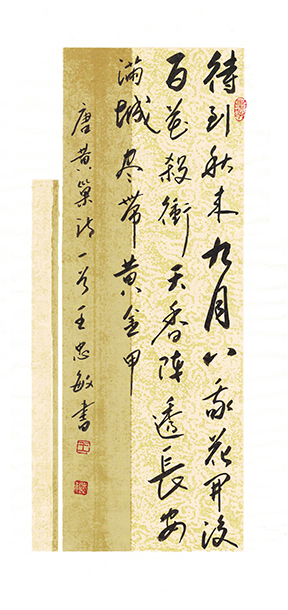 待到秋来九月八我花开後
百花殺衝天香阵透長安
满城尽帶黄金甲
唐黄巢诗一首王忠敏書